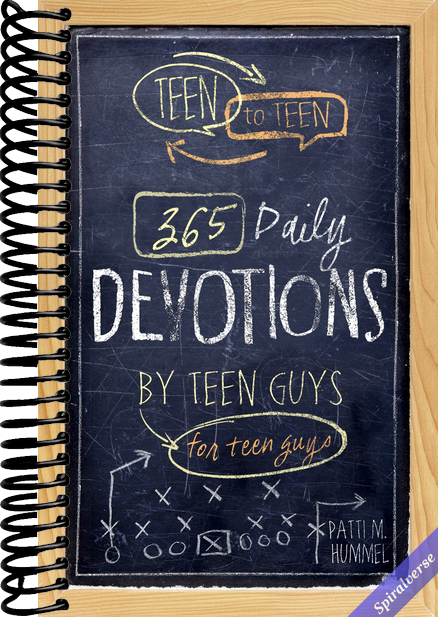 TEEN
to TEEN
365 Daily
DEVOTIONS
BY TEEN GUYS
for teen guys
PATTI M.
HUMMEL
Spiralverse